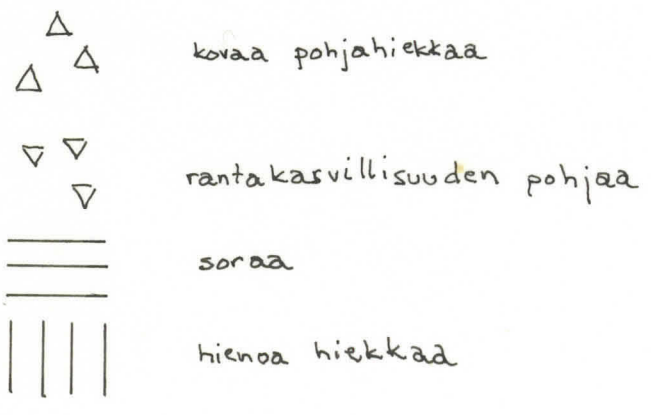 kovaa pohjahiekkaa
rantakasvillisuuden pohjaa
soraa
hienoa hiekkaa